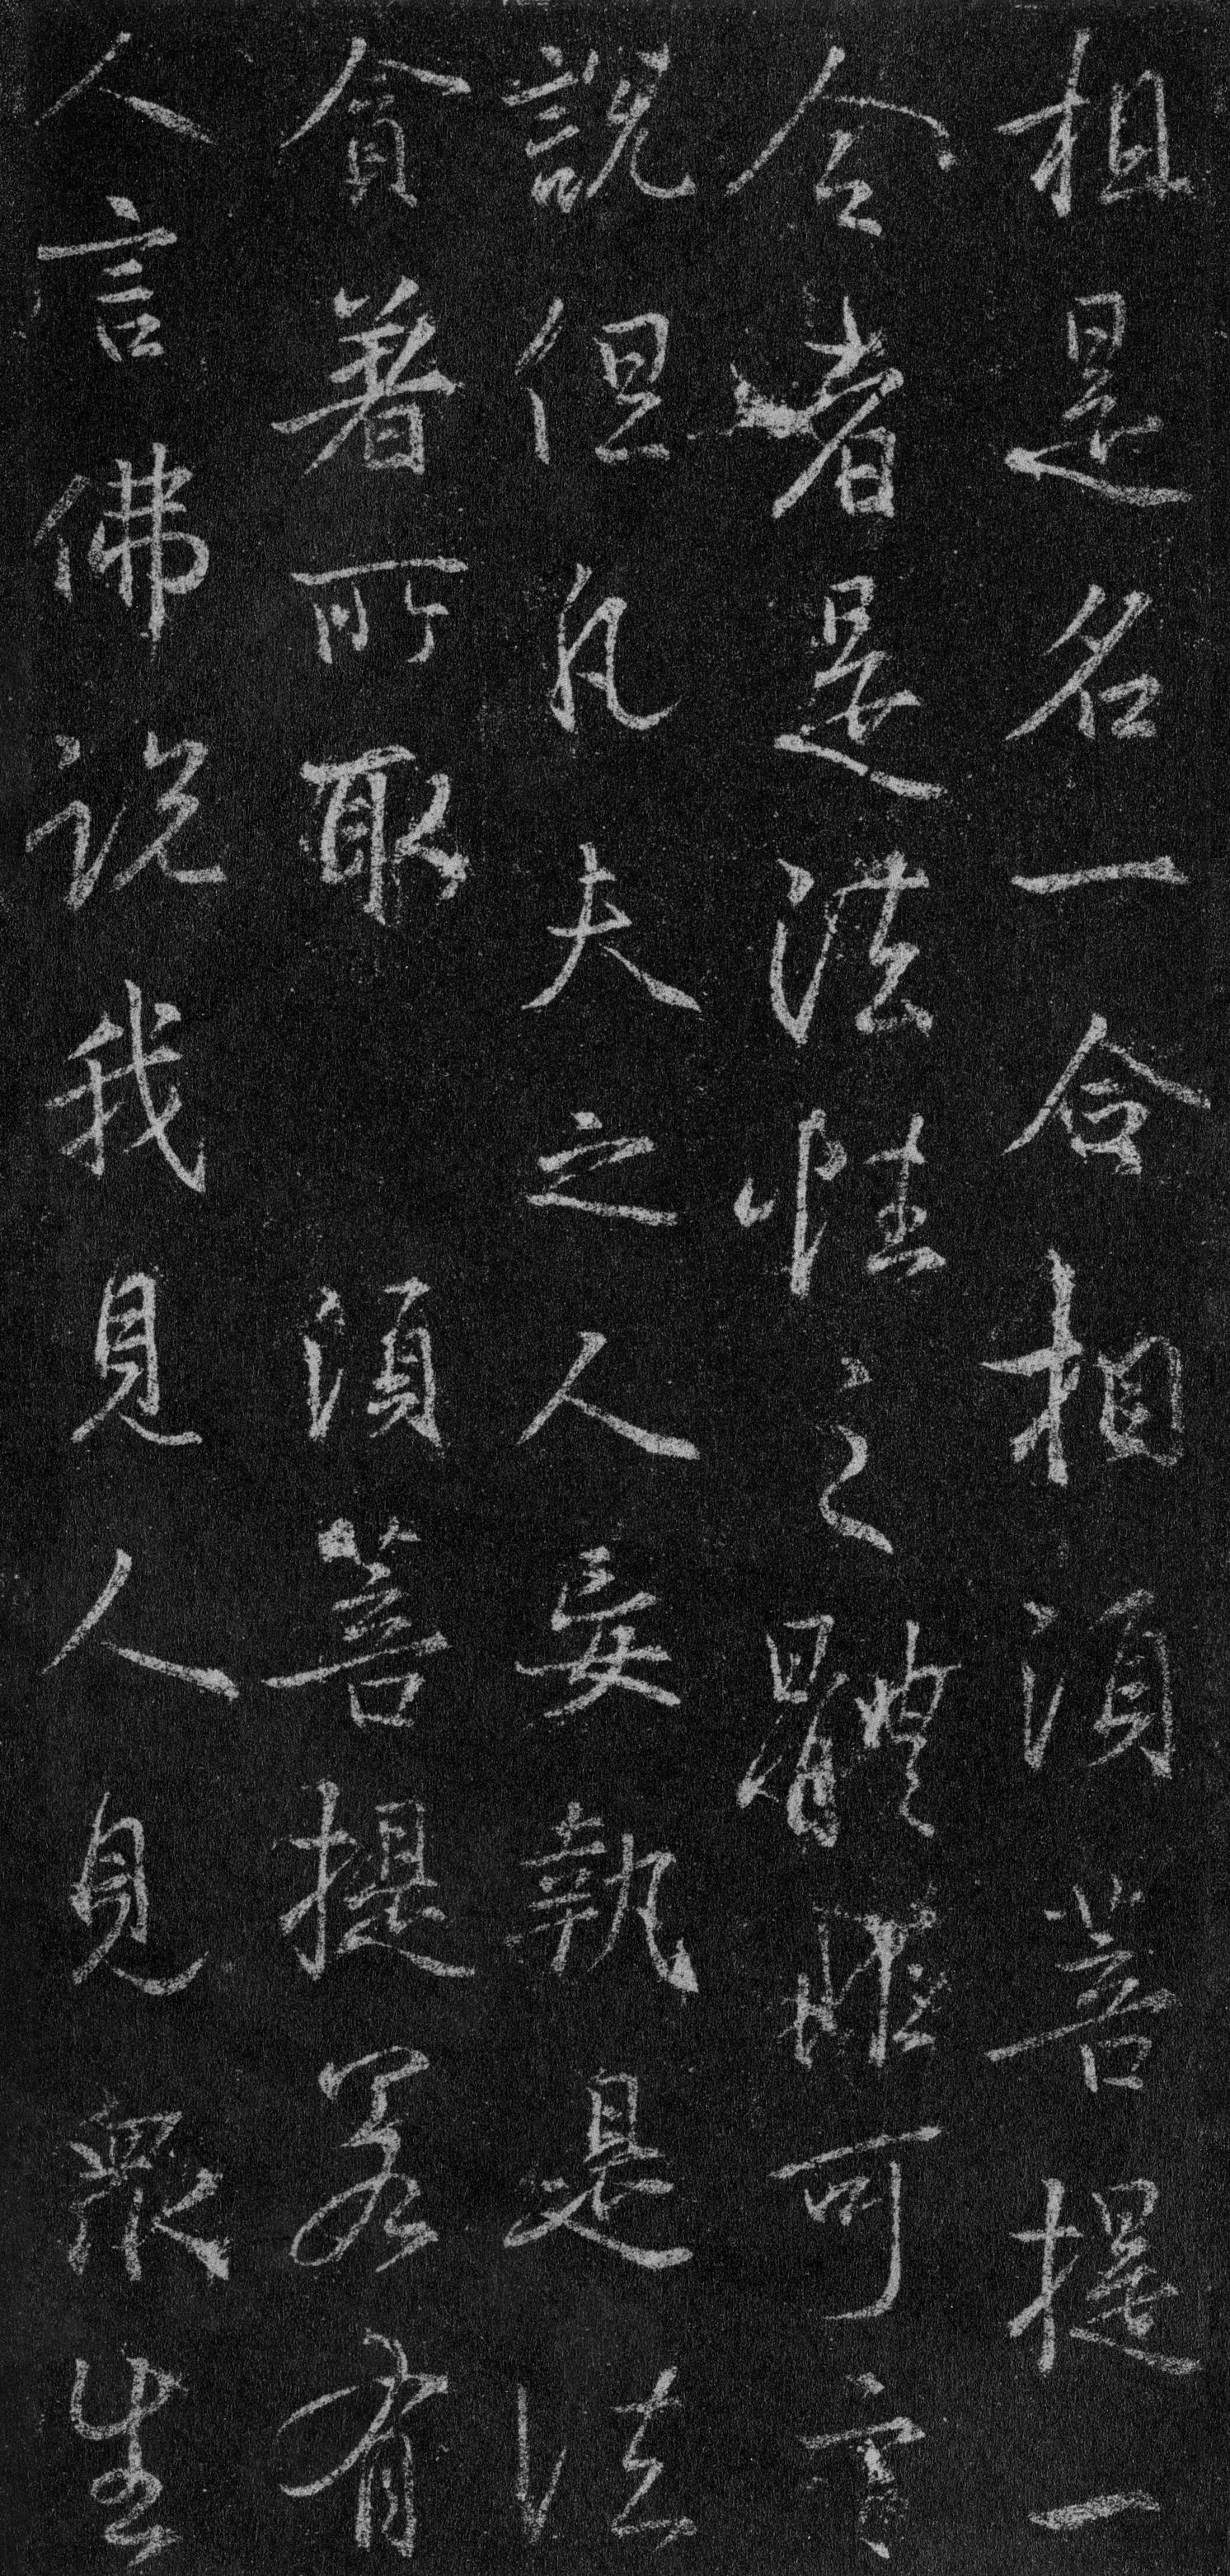 相是名一合相須菩提一
合者是法性之體非可言
說但凡夫之人妄執是法
貪著所取 須菩提若有
人言佛說我見人見眾生